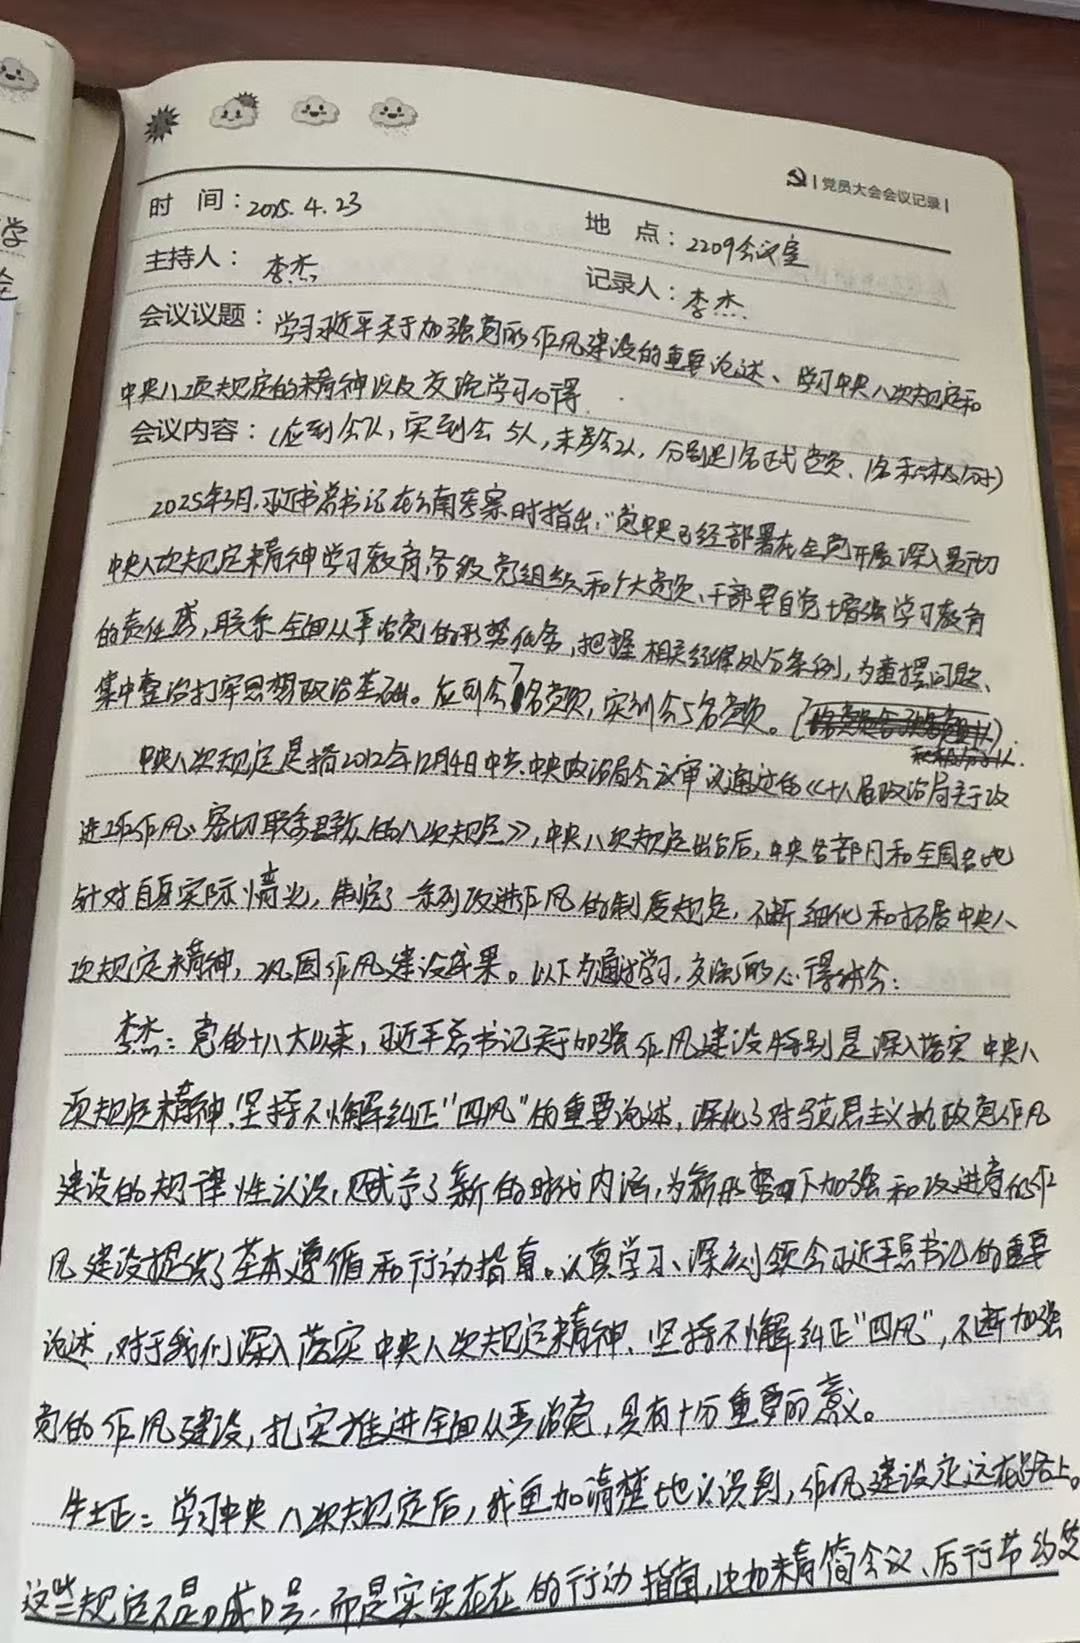 学
党员大会会议记录
时 间：2025.4.23
地 点：2209会议室
主持人：李杰
记录人：李杰
会议议题：学习习近平关于加强党的作风建设的重要论述、学习中央八项规定和
中央八项规定的精神以及交流学习心得.
会议内容：（应到会7人，实到会5人，未参会2人，分别是1名正式党员、1名积极分子）
2025年3月，习近平总书记在云南考察时指出：“党中央已经部署在全党开展深入贯彻
中央八项规定精神学习教育各级党组织和广大党员、干部要自觉增强学习教育
的责任感，联系全面从严治党的形势任务，把握相关纪律处分条例，为查摆问题、
集中整治打牢思想政治基础。应到会7名党员，实到会5名党员。
积极分子1人.
中央八项规定是指2012年12月4日中共中央政治局会议审议通过的《十八届政治局关于改
进工作作风、密切联系群众的八项规定》，中央八项规定出台后，中央各部门和全国各地
针对自身实际情况，制定了一系列改进作风的制度规定，不断细化和拓展中央八
项规定精神，巩固作风建设成果。以下为通过学习，交流的心得体会：
李杰：党的十八大以来，习近平总书记关于加强作风建设特别是深入落实中央八
项规定精神、坚持不懈纠正“四风”的重要论述，深化了对马克思主义执政党作风
建设的规律性认识，赋予了新的时代内涵，为新形势下加强和改进党的作
风建设提供了基本遵循和行动指南。认真学习、深刻领会习近平总书记的重要
论述，对于我们深入落实中央八项规定精神、坚持不懈纠正“四风”，不断加强
党的作风建设，扎实推进全面从严治党，具有十分重要的意义。
牛士正：学习中央八项规定后，我更加清楚地认识到，作风建设永远在路上。
这些规定不是口号，而是实实在在的行动指南，比如精简会议、厉行节约